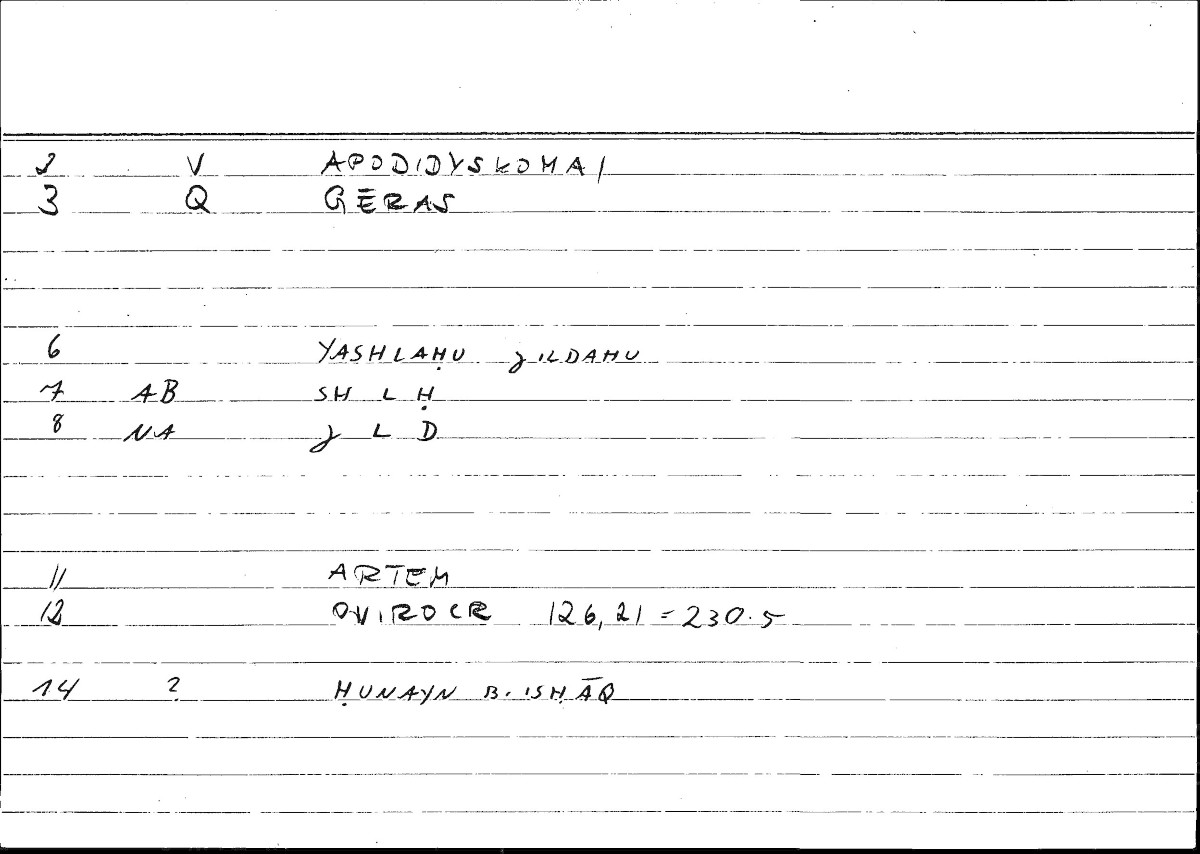 2 V APODIDYSKOMAI
3 Q GĒRAS
6 YASHLAḤU JILDAHU
7 AB SH L Ḥ
8 NA J L D
11 ARTEM
12 OVIROCR 126,21 = 230.5
14 ? ḤUNAYN B. ISḤĀQ